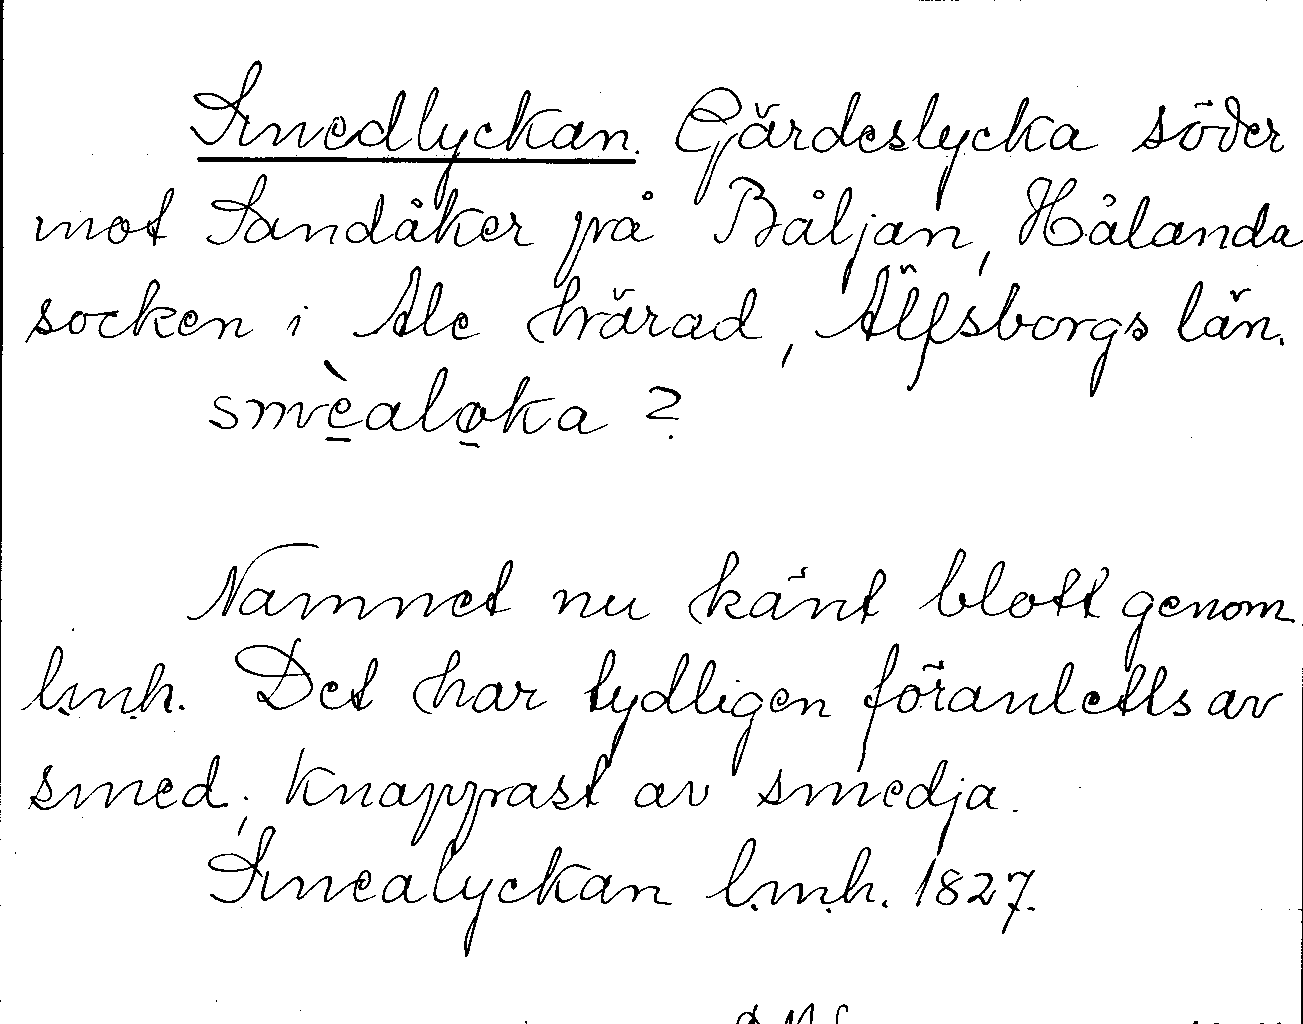 Smedlyckan. Gärdeslycka söder
mot Sandåker på Båljan, Hålanda
socken i Ale härad, Älfsborgs län.
smèaløka ?
Namnet nu känt blott genom
l.m.h. Det har tydligen föranletts av
smed; knappast av smedja.
Smealyckan l.m.h. 1827.